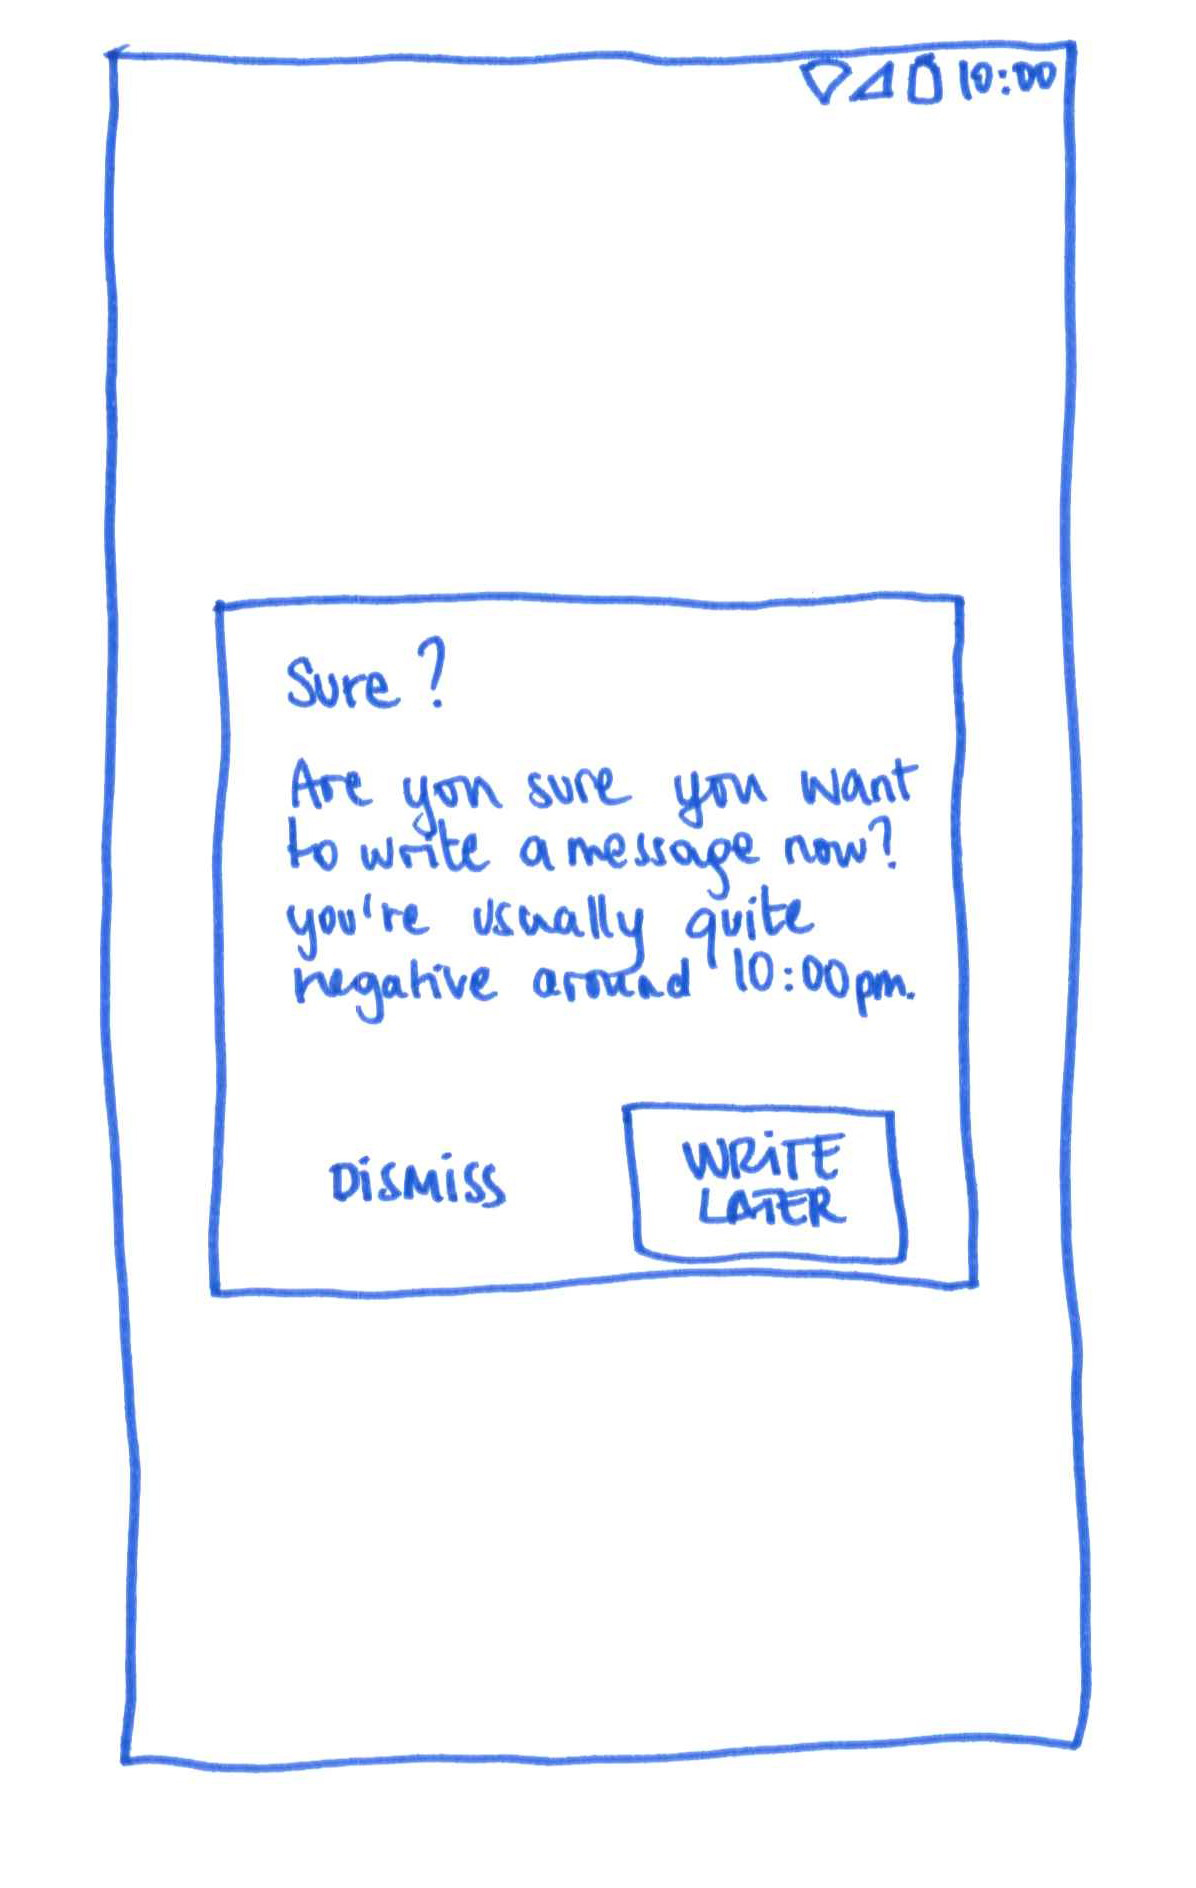 10:00
Sure?
Are you sure you want
to write a message now?
you're usually quite
negative around 10:00pm.
DISMISS
WRITE
LATER